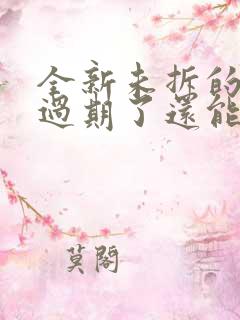 全新未拆的
過期了還能
莫閣